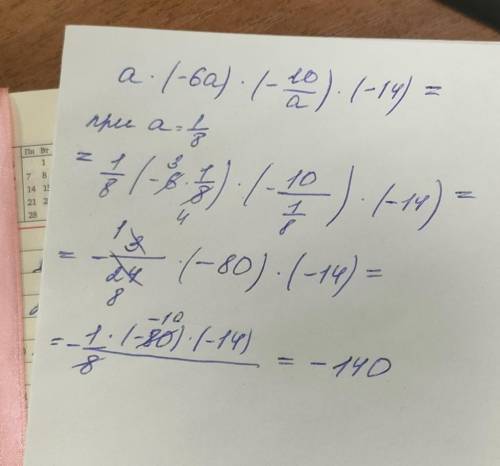 a · (-6a) · (-10/a) · (-14) =
при a = 1/8
= 1/8 (-6 3 · 1/8 4) · (-10/(1/8)) · (-14) =
= - 1 3/24 8 · (-80) · (-14) =
= - 1 · (-80 -10) · (-14)/8 = -140
Пн Вт
1
7 8
14 15
21 2
28